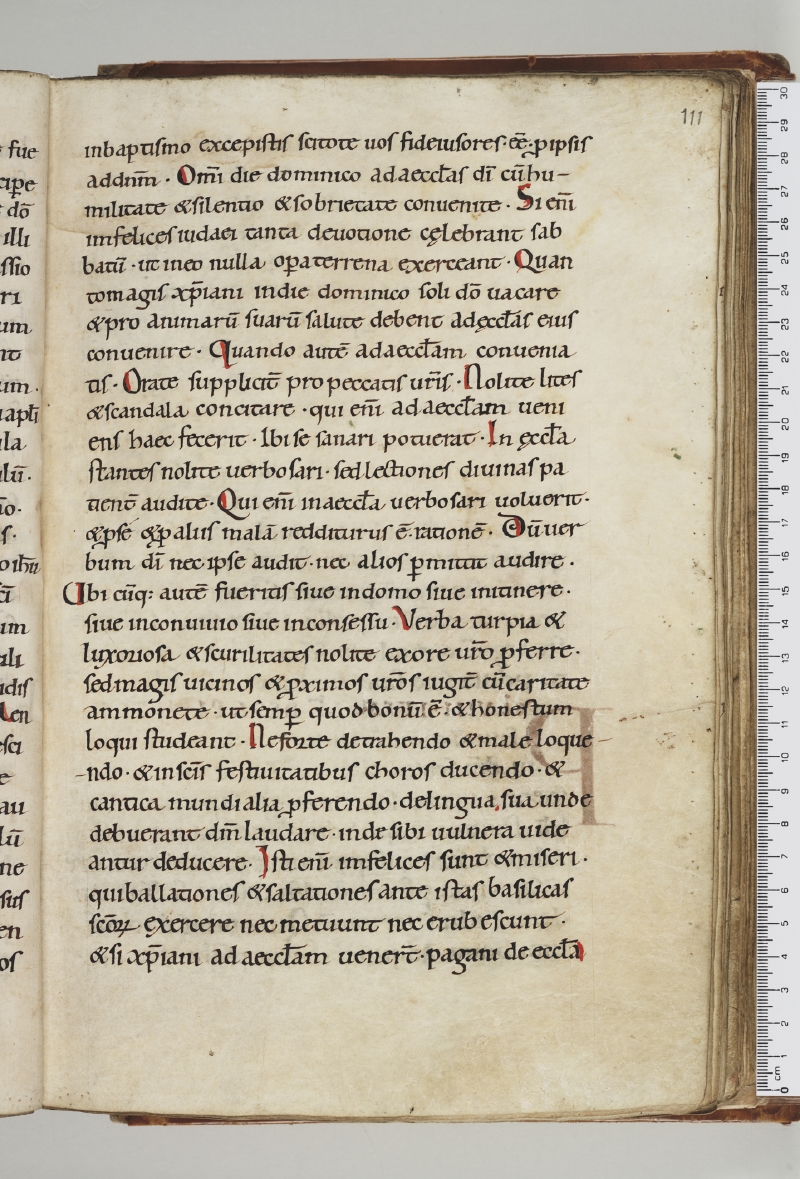 111
inbaptismo excepistis scitote uos fideiusores·eē·p̱ipsis
addnm̄ · Omī die dominico adaeccłas dī cūhu–
militate &silentio &sobrietate conuenite · Si enī
infelicesiudaei tanta deuotione cęlebrant sab
batū ·utineo nulla op̱aterrena exerceant · Quan
tomagis xp̄iani indie dominico soli dō uacare
&pro animarū suarū salute debent adęccłas eius
conuenire · Quando autē adaeccłam conuenia
tis · Orate supplicit̄ propeccatis ur̄is · Nolite lites
&scandala concitare ·qui enī adaeccłam ueni
ens haec fecerit · Ibise sanari potuerat · In ęccła
stantes nolite uerbosari · sedlectiones diuinaspa
tient̄ audite · Qui enī inaeccła uerbosari uoluerit·
&p̱se &p̱aliis malā redditurus ē·rationē · Dū uer
bum dī nec·ipse audit·nec alios p̱mittit audire ·
Ubi cūq: autē fueritis siue indomo siue initinere ·
siue inconuiuio siue inconsessu · Verba turpia &
luxoriosa &scurilitates nolite exore ur̄o p̱ferre·
sedmagis uicinos &p̱ximos ur̄os iugit̄ cūcaritate
ammonete · utsemp̱ quodbonū ē·&honestum
loqui studeant · Neforte detrahendo &male loque–
–ndo·&inscīs festiuitatibus choros ducendo·&
cantica mundialia p̱ferendo·delingua sua unde
debuerant dm̄ laudare·inde sibi uulnera uide
antur deducere · Isti enī infelices sunt &miseri·
quiballationes &saltationes ante istas basilicas
scōꝝ exercere nec metuunt nec erubescunt ·
&si xp̄iani adaeccłam uenert̄·pagani de eccła